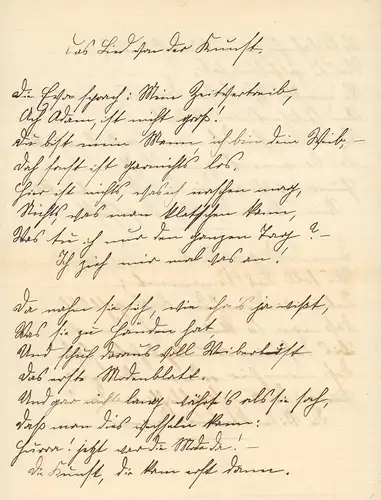 Das Lied von der Kunst.
Die Eva sprach: Mein Zeitvertreib,
Ach Adam, ist nicht groß!
Du bist mein Mann ich bin dein Weib, –
Doch sonst ist garnichts los.
Hier ist nichts, was ich naschen mag,
Nichts was man klatschen kann,
Was tu ich nur den ganzen Tag? –
Ich zieh mir mal was an!
Da nahm sie sich, wie ihr's ja wißt,
Was sie zu Händen hat
Und schuf daraus voll Weiberlist
Das erste Modenblatt.
Und gar nicht lang währt's als sie sah,
daß man dies wechseln kann:
Hurra! jetzt war die Mode da! –
Die Kunst, die kam erst dann.